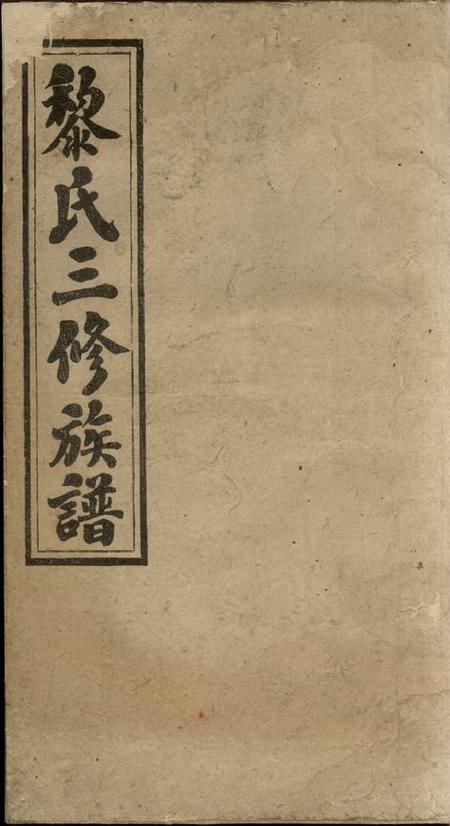 黎氏三修族譜